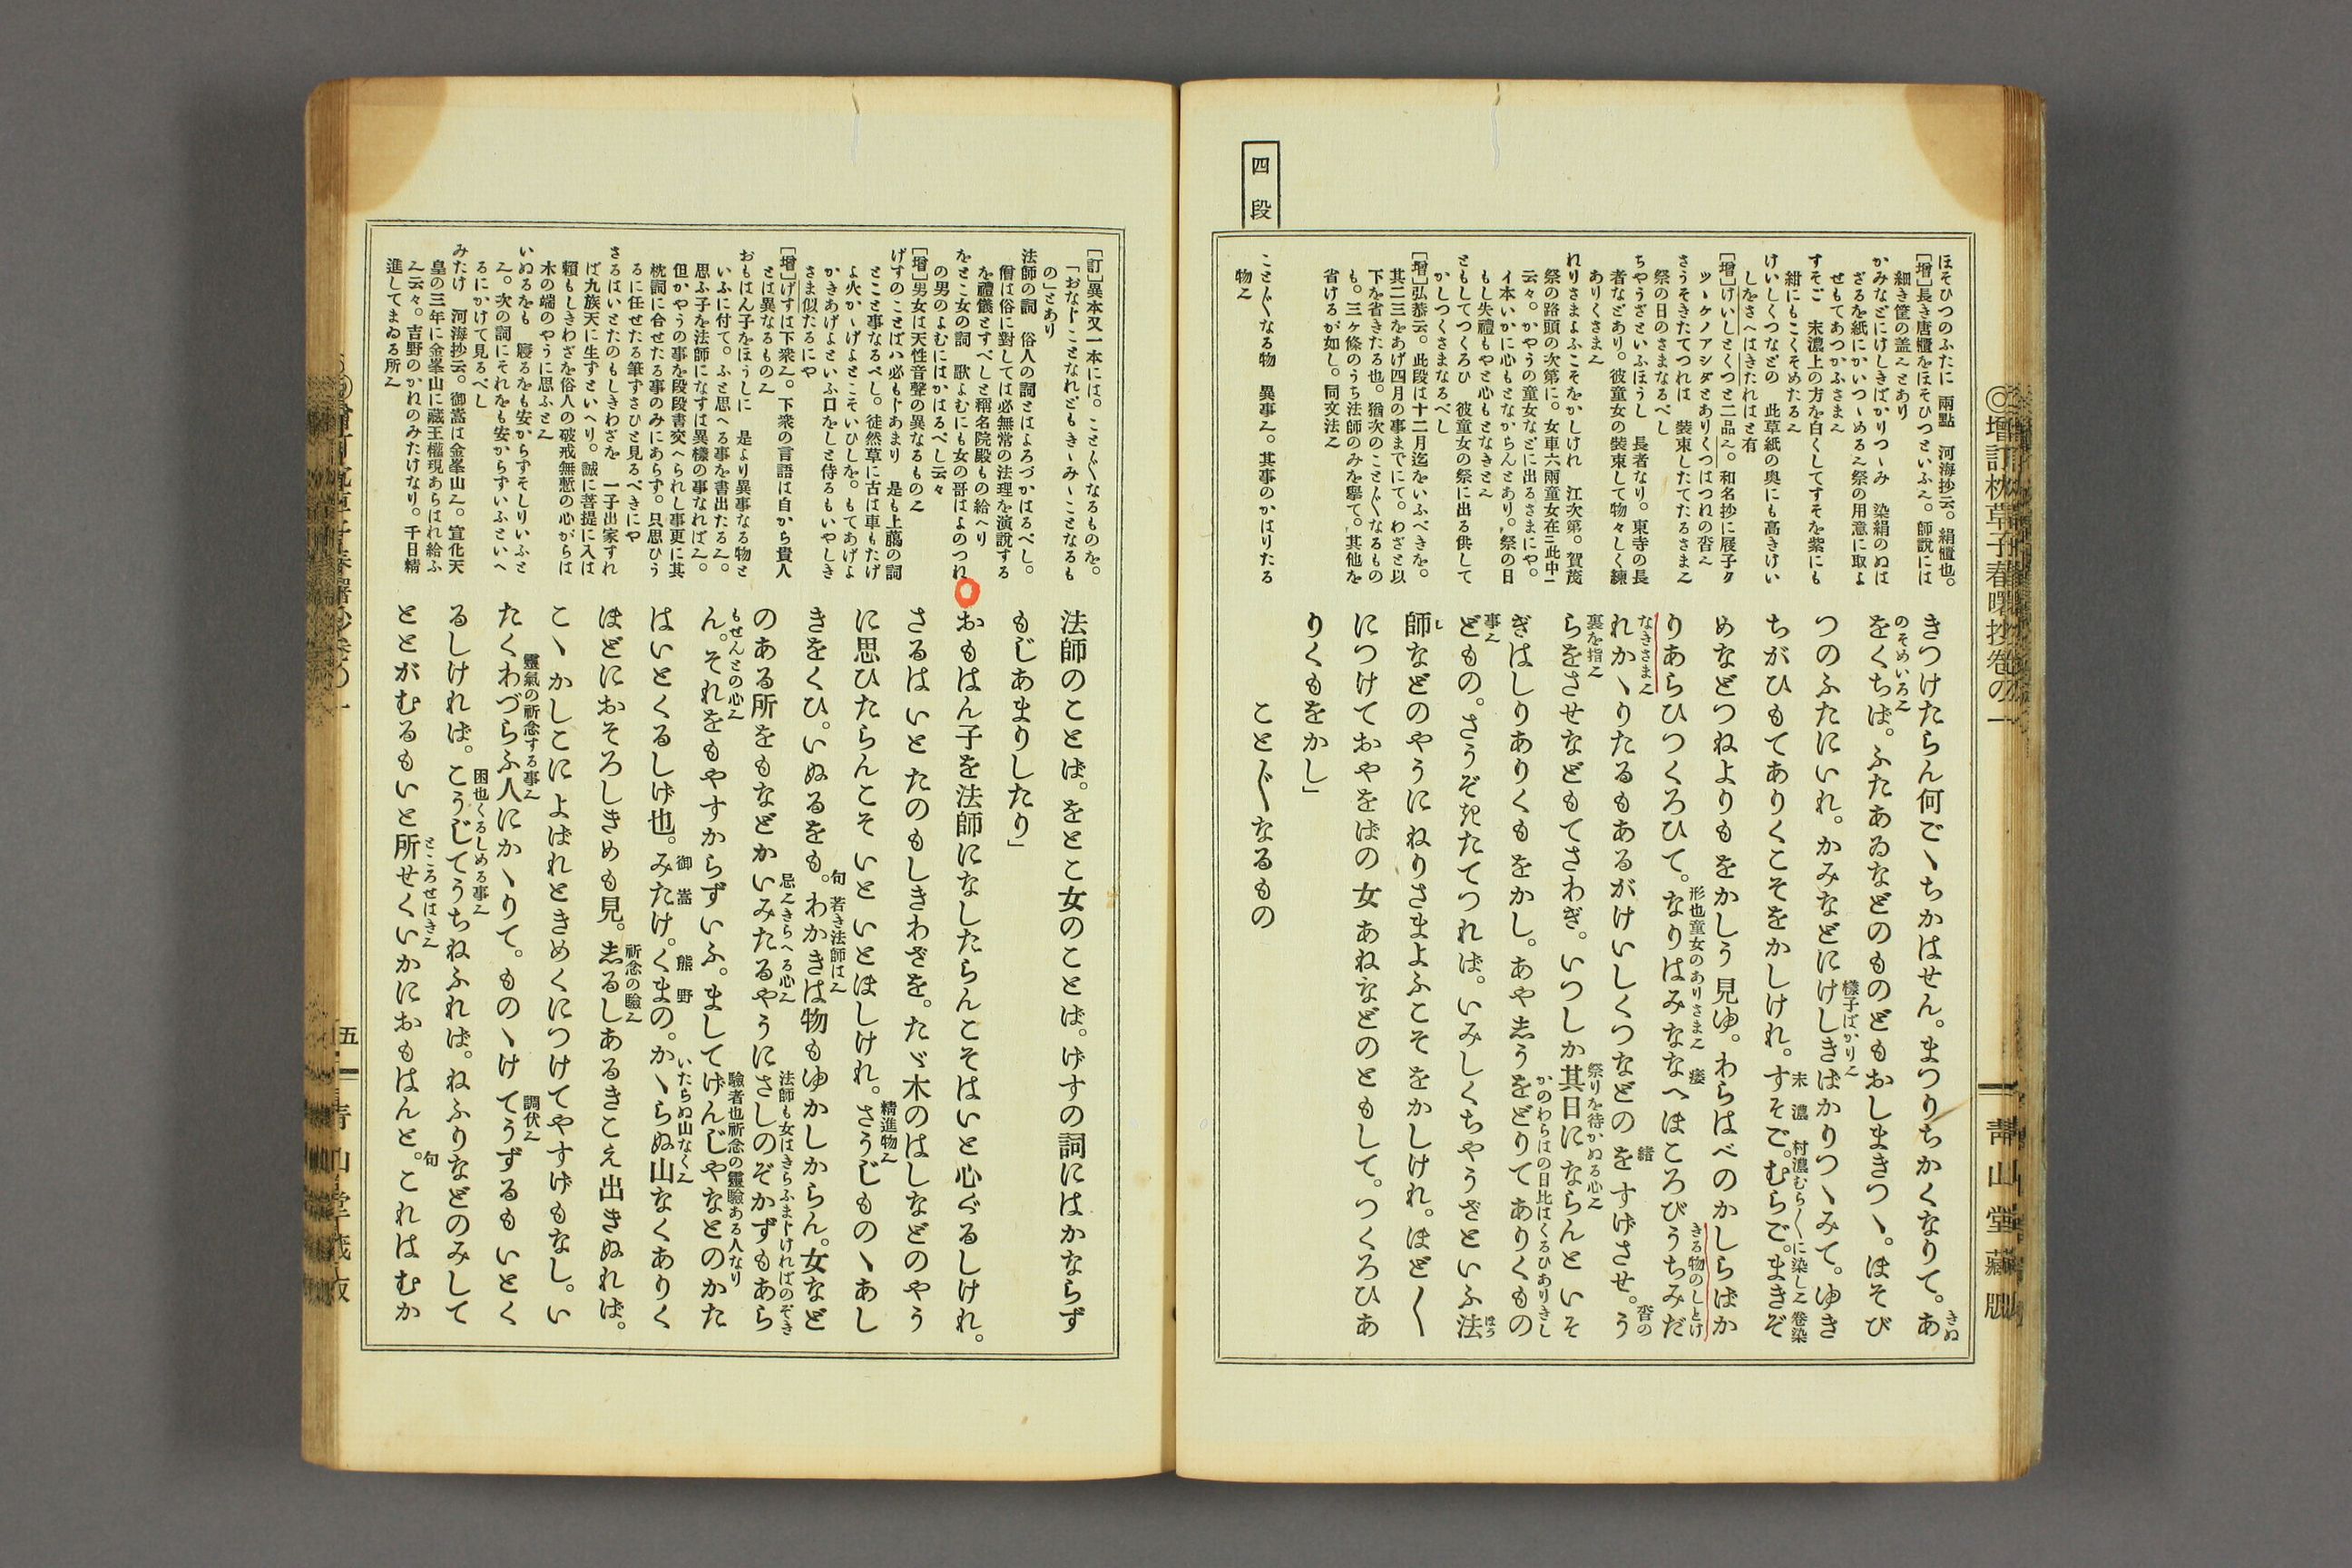 ◎增訂枕草子春曙抄卷の一
靑山堂藏版
四段
ほそひつのふたに 兩點 河海抄云。絹櫃也。
[增]長き唐櫃をほそひつといふ𛀁。師說には
細き筐の盖𛀁とあり
かみなどにけしきばかりつゝみ 染絹のぬは
ざるを紙にかいつゝめる𛀁祭の用意に取よ
せもてあつかふさま𛀁
すそご 末濃上の方を白くしてすそを紫にも
紺にもこくそめたる𛀁
けいしくつなどの 此草紙の奧にも高きけい
しをさへはきたれはと有
[增]けいしとくつと二品𛀁。和名抄に屐子ク
ツゝケノアシダとありくつはつれの沓𛀁
さうそきたてつれは 裝束したてたるさま𛀁
祭の日のさまなるべし
ちやうざといふほうし 長者なり。東寺の長
者などあり。彼童女の裝束して物々しく練
ありくさま𛀁
れりさまよふこそをかしけれ 江次第。賀茂
祭の路頭の次第に。女車六兩童女在二此中一
云々。かやうの童女などに出るさまにや。
イ本いかに心もとなからんとあり。祭の日
もし失禮もやと心もとなきと𛀁
ともしてつくろひ 彼童女の祭に出る供して
かしつくさまなるべし
[增]弘恭云。此段は十二月迄をいふべきを。
其二三をあげ四月の事までにて。わざと以
下を省きたる也。猶次のこと〴〵なるもの
も。三ヶ條のうち法師のみを擧て。其他を
省けるが如し。同文法𛀁
こと〴〵なる物 異事𛀁。其事のかはりたる
物𛀁
きつけたらん何ごゝちかはせん。まつりちかくなりて。あ
きぬ
のそめいろ𛀁
をくちば。ふたあゐなどのものどもおしまきつゝ。ほそび
つのふたにいれ。かみなどにけしきばかりつゝみて。ゆき
樣子ばかり𛀁
ちがひもてありくこそをかしけれ。すそご。むらご。まきぞ
末濃 村濃むら〳〵に染し𛀁 卷染
めなどつねよりもをかしう見ゆ。わらはべのかしらばか
りあらひつくろひて。なりはみななへほころびうちみだ
形也童女のありさま𛀁 痿 きる物のしとけ
なきさま𛀁
れかゝりたるもあるがけいしくつなどのをすげさせ。う
緖 沓の
裏を指𛀁
らをさせなどもてさわぎ。いつしか其日にならんといそ
祭りを待かぬる心𛀁
ぎはしりありくもをかし。あや志うをどりてありくもの
かのわらはの日比はくるひありきし
事𛀁
ども の。さうぞきたてつれば。いみしくちやうざといふ法
ほう
し
師などのやうにねりさまよふこそをかしけれ。ほど〳〵
につけておやをばの女あねなどのともして。つくろひあ
りくもをかし」
こと〴〵なるもの
[訂]異本又一本には。こと〴〵なるものを。
「おなじことなれどもきゝみゝことなるも
の」とあり
法師の詞 俗人の詞とはよろづかはるべし。
僧は俗に對しては必無常の法理を演說する
を禮儀とすべしと稱名院殿もの給へり
をとこ女の詞 歌よむにも女の哥はよのつれ
の男のよむにはかはるべし云々
[增]男女は天性音聲の異なるもの𛀁
げすのことばハ必もじあまり 是も上﨟の詞
とこと事なるべし。徒然草に古は車もたげ
よ火かゝげよとこそいひしを。もてあげよ
かきあげよといふ口をしと侍るもいやしき
さま似たるにや
[增]げすは下衆𛀁。下衆の言語は自から貴人
とは異なるもの𛀁
おもはん子をほうしに 是より異事なる物と
いふに付て。ふと思へる事を書出たる𛀁。
思ふ子を法師になすは異樣の事なれば𛀁。
但かやうの事を段段書交へられし事更に其
枕詞に合せたる事のみにあらず。只思ひう
るに任せたる筆すさひと見るべきにや
さるはいとたのもしきわざを 一子出家すれ
ば九族天に生ずといへり。誠に菩提に入は
賴もしきわざを俗人の破戒無慙の心がらは
木の端のやうに思ふと𛀁
いぬるをも 寢るをも安からすそしりいふと
𛀁。次の詞にそれをも安からずいふといへ
るにかけて見るべし
みたけ 河海抄云。御嵩は金峯山𛀁。宣化天
皇の三年に金峯山に藏王權現あらはれ給ふ
𛀁云々。吉野のかれのみたけなり。千日精
進してまゐる所𛀁
法師のことば。をとこ女のことば。げすの詞にはかならず
もじあまりしたり」
おもはん子を法師になしたらんこそはいと心ぐるしけれ。
さるはいとたのもしきわざを。たゞ木のはしなどのやう
に思ひたらんこそいといとほしけれ。さうじものゝあし
精進物𛀁
きをくひ。いぬるをも。わかきは物もゆかしからん。女など
句 若き法師は𛀁
のある所をもなどかいみたるやうにさしのぞかずもあら
忌𛀁きらへる心𛀁 法師も女はきらふまじければのぞき
もせんとの心𛀁
ん。それをもやすからずいふ。ましてげんじやなとのかた
驗者也祈念の靈驗ある人なり
はいとくるしげ也。みたけ。くまの。かゝらぬ山なくありく
御嵩 熊野 いたらぬ山なく𛀁
ほどにおそろしきめも見。志るしあるきこえ出きぬれば。
祈念の驗𛀁
こゝかしこによばれときめくにつけてやすげもなし。い
たくわづらふ人にかゝりて。ものゝけてうずるもいとく
靈氣の祈念する事𛀁 調伏𛀁
るしければ。こうじてうちねふれば。ねふりなどのみして
困也くるしめる事𛀁
ととがむるもいと所せくいかにおもはんと。これはむか
ところせはき𛀁 句
五